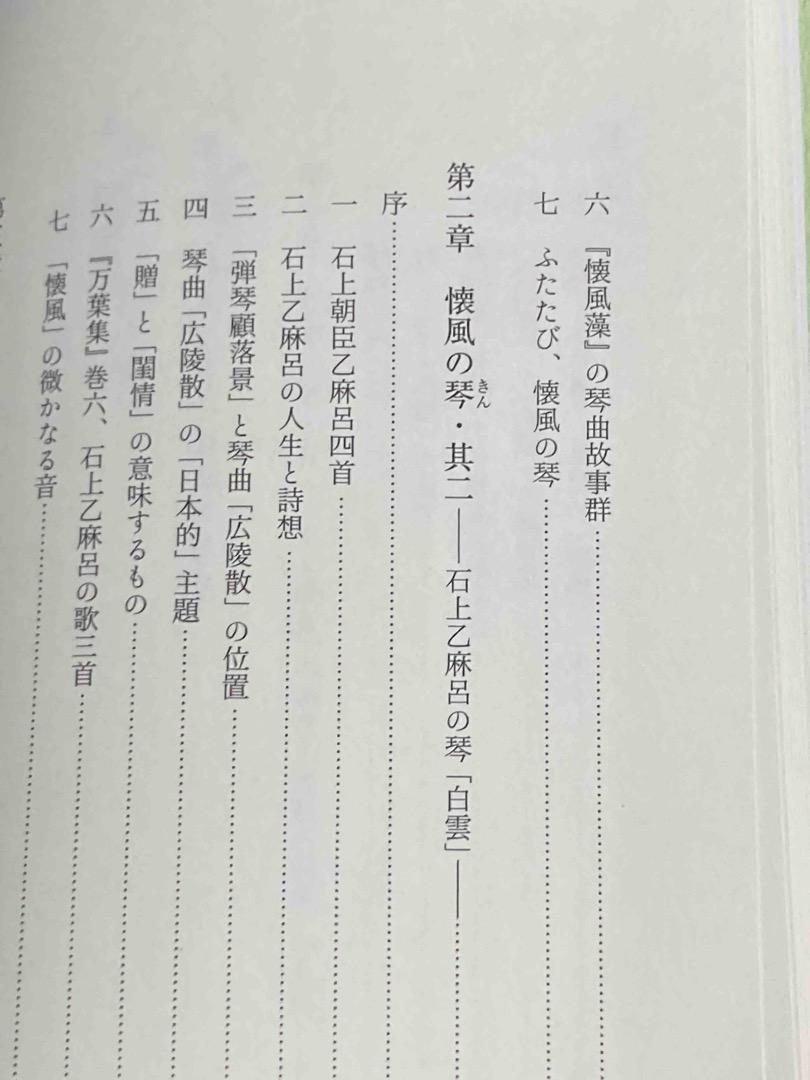 六 『懐風藻』の琴曲故事群
七 ふたたび、懐風の琴
第二章 懐風の琴・其二――石上乙麻呂の琴「白雲」――
きん
序
一 石上朝臣乙麻呂四首
二 石上乙麻呂の人生と詩想
三 「弾琴顧落景」と琴曲「広陵散」の位置
四 琴曲「広陵散」の「日本的」主題
五 「贈」と「閨情」の意味するもの
六 『万葉集』巻六、石上乙麻呂の歌三首
七 「懐風」の微かなる音